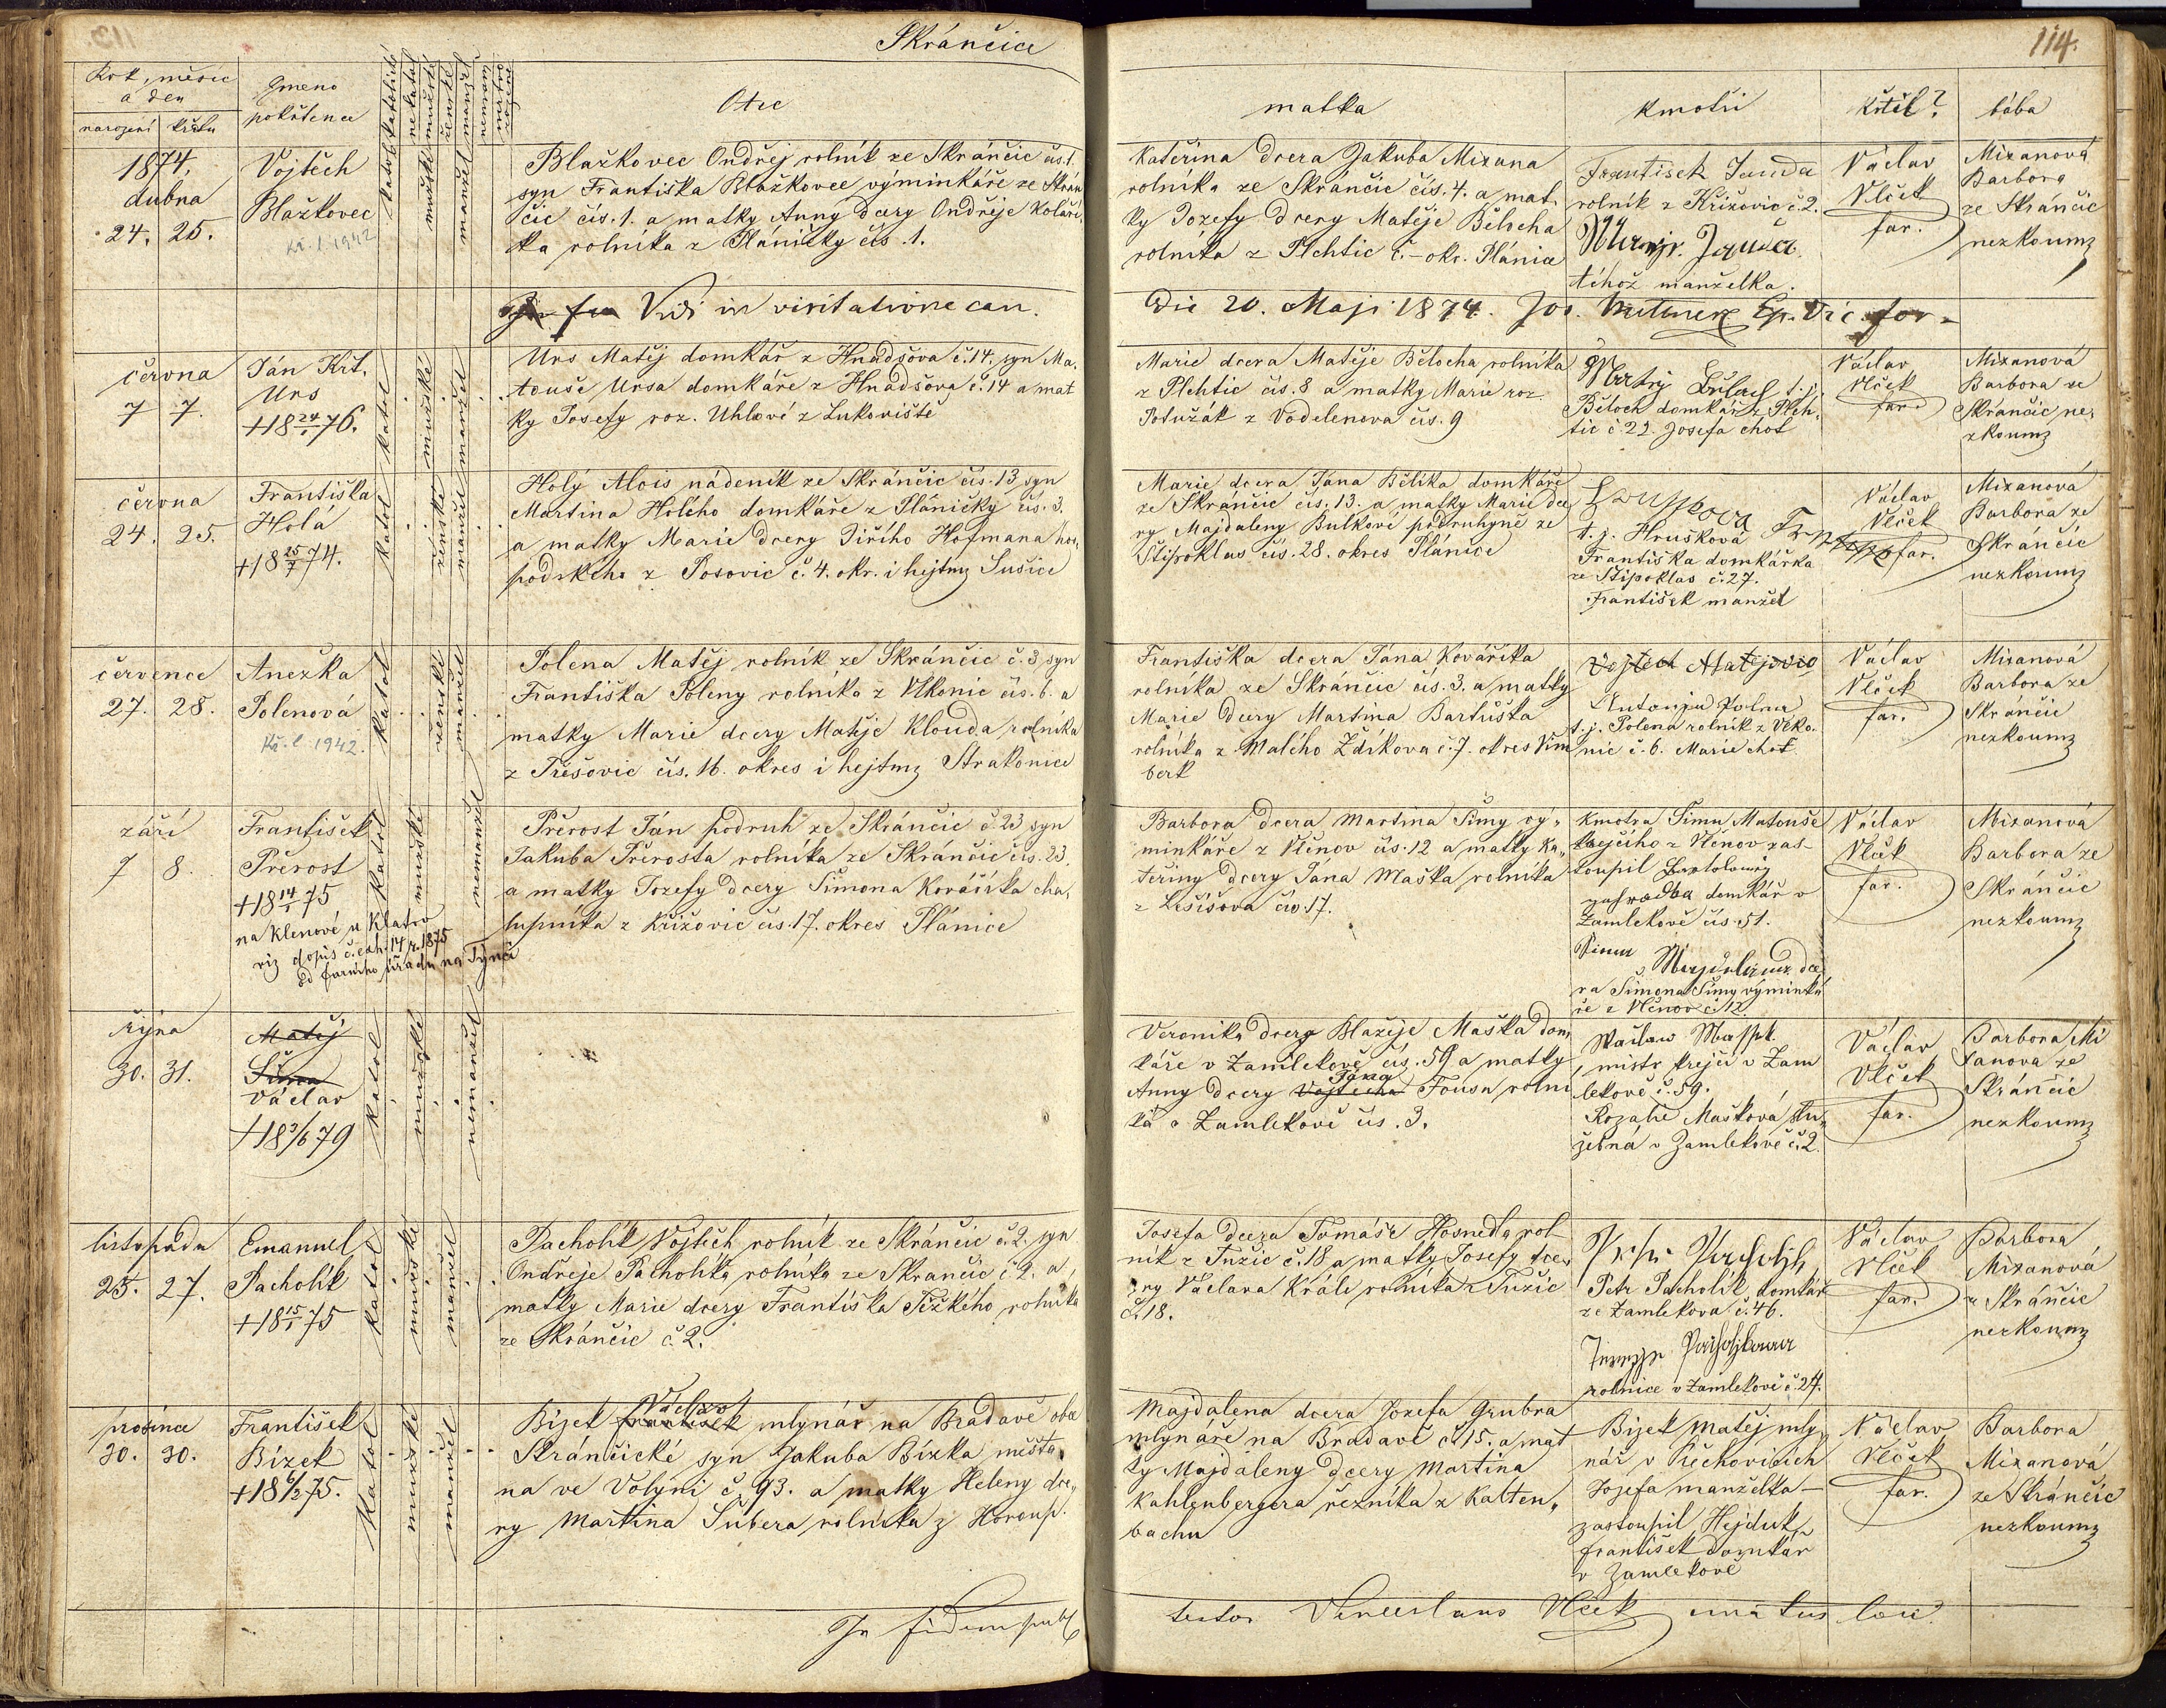 Skránčice
114.
Rok, měsíc
a den
narození křstu
Gmeno
pokřtence
katolické
nekatol
mužské
ženské
manžel
nemanž
mrtvo
rozené
Otec
matka
kmotři
křtil?
bába
1874,
dubna
24. 25.
Vojtěch
Blažkovec
Kř. l. 1942
katol
mužské
manžel
Blažkovec Ondřej rolník ze Skránčic čís. 1.
syn Františka Blažkovce výminkáře ze Skrán
čic čís. 1. a matky Anny dcery Ondřeje Koláře
ka rolníka z Pláničky čís. 1.
Kateřina dcera Jakuba Mizana
rolníka ze Skránčic čís. 4. a mat
ky Jozefy dcery Matěje Bělocha
rolníka z Plchtic č. – okr. Plánice
František Janda
rolník z Křižovic č. 2.
téhož manželka.
Václav
Vlček
far.
Mizanová
Barbora
ze Skránčic
nezkoumz
Vidi in visitatione can.
Die 20. Maji 1874. Jos.
června
7 7.
Ján Křt.
Urs
+18 24/1 76.
katol
mužské
manžel
Urs Matěj domkář z Hnačova č. 14. syn Ma,
touše Ursa domkáře z Hnačova č. 14 a mat
ky Josefy roz. Uhlové z Lukoviště
Marie dcera Matěje Bělocha rolníka
z Plchtic čís. 8 a matky Marie roz.
Potužák z Vodelenova čís. 9
t. j.
Běloch domkář z Plch,
tic č. 22. Josefa choť
Václav
Vlček
far.
Mizanová
Barbora ze
Skránčic ne,
zkoumz
června
24. 25.
Františka
Holá
+18 25/7 74.
katol
ženské
manžel
Holý Alois nádeník ze Skránčic čís. 13 syn
Martina Holého domkáře z Pláničky čís. 3.
a matky Marie dcery Jiřího Hofmana hos,
podského z Posovic č. 4. okr. i hejtmz Sušice
Marie dcera Jána Bělíka domkáře
ze Skránčic čís. 13. a matky Marie dce
ry Majdaleny Bulkové podruhyně ze
Štipoklas čís. 28. okres Plánice
t. j. Hrušková
Františka domkářka
ze Štipoklas č. 27.
František manžel
Václav
Vlček
far.
Mizanová
Barbora ze
Skránčic
nezkoumz
července
27. 28.
Anežka
Polenová
Kř. l. 1942.
katol
ženské
manžel
Polena Matěj rolník ze Skránčic č. 3 syn
Františka Poleny rolníka z Vlkonic čís. 6. a
matky Marie dcery Matěje Klouda rolníka
z Třešovic čís. 16. okres i hejtmz Strakonice
Františka dcera Jána Kováříka
rolníka ze Skránčic čís. 3. a matky
Marie dcery Martina Bartůška
rolníka z Malého Zdíkova č. 7. okres Vim
berk
Vojtěch Matějovic
Antonín Polena
t. j. Polena rolník z Vlko,
nic č. 6. Marie choť
Václav
Vlček
far.
Mizanová
Barbora ze
Skránčic
nezkoumz
září
7 8.
František
Přerost
+18 14/1 75
na Klenové u Klatov
viz dopis č. exh. 14 r. 1875
od farního úřadu na Týnci
katol
mužské
nemanžel
Přerost Ján podruh ze Skránčic č. 23 syn
Jakuba Přerosta rolníka ze Skránčic čís. 23.
a matky Jozefy dcery Šimona Kováříka cha,
lupníka z Křižovic čís. 17. okres Plánice
Barbora dcera Martina Šimy vý,
minkáře z Vlčenov čís. 12 a matky Ka,
teřiny dcery Jána Maška rolníka
z Lešišova čís. 17.
Kmotra Šimu Matouše
krejčího z Vlčenov zas,
toupil Bartoloměj
domkář v
Zamlekově čís. 51.
dce
ra Šimona Šimy výminká
ře z Vlčenov č. 12.
Václav
Vlček
far.
Mizanová
Barbora ze
Skránčic
nezkoumz
října
30. 31.
Matěj
Šima
Václav
+18 3/6 79
katol
mužské
nemanžel
Veronika dcera Blažeje Maška dom,
káře v Zamlekově čís. 59 a matky
Jána
Anny dcery Vojtěcha Fousa rolní
ka v Zamlekově čís. 3.
mistr krejčí v Zam
lekově č. 59.
Rozalie Mašková slu,
žebná v Zamlekově č. 2.
Václav
Vlček
far.
Barbora Mi
zanova ze
Skránčic
nezkoumz
listopadu
25. 27.
Emanuel
Pacholík
+18 15/1 75
katol
mužské
manžel
Pacholík Vojtěch rolník ze Skránčic č. 2. syn
Ondřeje Pacholíka rolníka ze Skránčic č. 2. a
matky Marie dcery Františka Těžkého rolníka
ze Skránčic č. 2.
Josefa dcera Tomáše Hosnedla rol
ník z Tužic č. 18 a matky Josefy dce,
ry Václava Krále rolníka z Tužic
č. 18.
Petr Pacholík domkář
ze Zamlekova č. 46.
rolnice v Zamlekově č. 24.
Václav
Vlček
far.
Barbora
Mizanová
z Skránčic
nezkoumz
prosince
30. 30.
František
Bízek
+18 6/2 75.
katol
mužské
manžel
Václav
Bízek František mlynář na Bradavě obce
Skránčické syn Jakuba Bízka měšťa,
na ve Volyni č. 93. a matky Heleny dce,
ry Martina Šubera rolníka z Horoup.
Majdalena dcera Jozefa Grubra
mlynáře na Bradavě č. 15. a mat
ky Majdaleny dcery Martina
Kahlenbergera řezníka z Kalten,
bachu
Bízek Matěj mly,
nář v Čechovicích
Jozefa manželka –
zastoupil Hejduk
František domkář
v Zamlekově
Václav
Vlček
far.
Barbora
Mizanová
ze Skránčic
nezkoumz
In fidem publ
Venceslaus Vlček